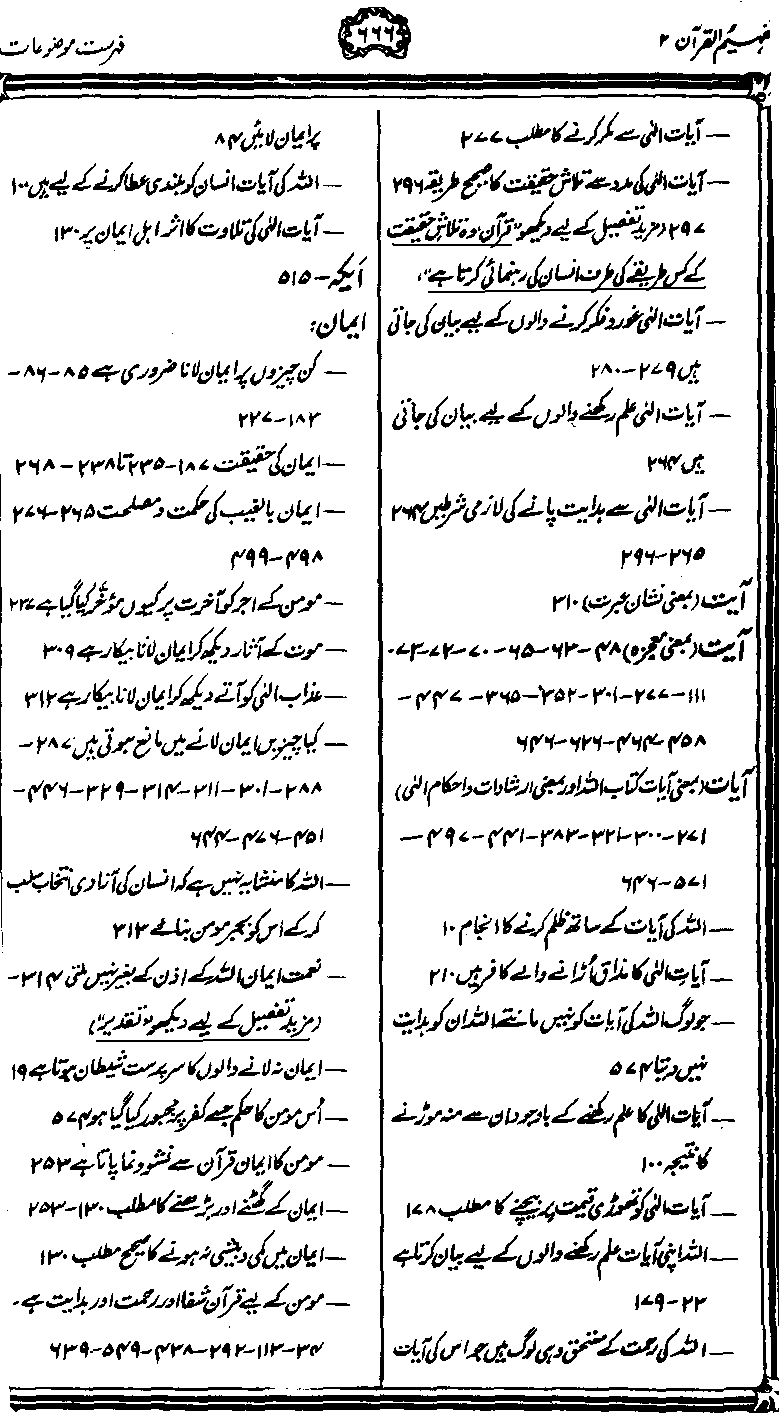 تفہیم القرآن ۲
۶۶۶
فہرست موضوعات
— آیات الٰہی سے مکر کرنے کا مطلب ۲۷۷
— آیات الٰہی کی مدد سے تلاش حقیقت کا صحیح طریقہ ۲۹۶
۲۹۷ (مزید تفصیل کے لیے دیکھو "قرآن" وہ تلاش حقیقت
کے کس طریقے کی طرف انسان کی رہنمائی کرتا ہے")
— آیات الٰہی غور و فکر کرنے والوں کے لیے بیان کی جاتی
ہیں ۲۷۹-۲۸۰
— آیات الٰہی علم رکھنے والوں کے لیے بیان کی جاتی
ہیں ۲۶۴
— آیات الٰہی سے ہدایت پانے کی لازمی شرطیں ۲۶۴
۲۶۵-۲۹۶
آیت (بمعنی نشان عبرت) ۳۱۰
آیت (بمعنی معجزہ) ۴۸-۶۳-۶۵-۷۰-۷۲-۷۳-
۱۱۱-۲۷۷-۳۰۱-۳۵۲-۳۶۵-۴۴۷-
۴۵۸-۴۶۴-۶۲۶-۶۴۶
آیات (بمعنی آیات کتاب اللہ اور بمعنی ارشادات و احکام الٰہی)
۲۷۱-۳۰۰-۳۲۱-۳۸۳-۴۴۱-۴۹۷-
۵۷۱-۶۴۶
— اللہ کی آیات کے ساتھ ظلم کرنے کا انجام ۱۰
— آیات الٰہی کا مذاق اڑانے والے کافر ہیں ۲۱۰
— جو لوگ اللہ کی آیات کو نہیں مانتے اللہ ان کو ہدایت
نہیں دیتا ۵۷۴
— آیات الٰہی کا علم رکھنے کے باوجود ان سے منہ موڑنے
کا نتیجہ ۱۰۰
— آیات الٰہی کو تھوڑی قیمت پر بیچنے کا مطلب ۱۷۸
— اللہ اپنی آیات علم رکھنے والوں کے لیے بیان کرتا ہے
۲۳-۱۷۹
— اللہ کی رحمت کے مستحق وہی لوگ ہیں جو اس کی آیات
پر ایمان لائیں ۸۴
— اللہ کی آیات انسان کو بلندی عطا کرنے کے لیے ہیں ۱۰۰
— آیات الٰہی کی تلاوت کا اثر اہل ایمان پر ۱۳۰
اَیکہ - ۵۱۵
ایمان:
— کن چیزوں پر ایمان لانا ضروری ہے ۸۵-۸۶-
۱۸۳-۲۲۷
— ایمان کی حقیقت ۱۸۷-۲۳۵ تا ۲۳۸-۲۶۸
— ایمان بالغیب کی حکمت و مصلحت ۲۶۵-۲۷۶
۴۹۸-۴۹۹
— مومن کے اجر کو آخرت پر کیوں مؤخر کیا گیا ہے ۲۲۷
— موت کے آثار دیکھ کر ایمان لانا بیکار ہے ۳۰۹
— عذاب الٰہی کو آتے دیکھ کر ایمان لانا بیکار ہے ۳۱۲
— کیا چیزیں ایمان لانے میں مانع ہوتی ہیں ۲۸۷-
۲۸۸-۳۰۱-۳۱۱-۳۱۴-۳۲۹-۴۴۶-
۴۵۱-۴۷۶-۶۴۴
— اللہ کا منشا یہ نہیں ہے کہ انسان کی آزادی انتخاب سلب
کر کے اس کو بجبر مومن بنائے ۳۱۳
— نعمت ایمان اللہ کے اذن کے بغیر نہیں ملتی ۳۱۴-
(مزید تفصیل کے لیے دیکھو "تقدیر")
— ایمان نہ لانے والوں کا سرپرست شیطان ہوتا ہے ۱۹
— اُس مومن کا حکم جسے کفر پر مجبور کیا گیا ہو ۵۷۴
— مومن کا ایمان قرآن سے نشو و نما پاتا ہے ۲۵۳
— ایمان کے گھٹنے اور بڑھنے کا مطلب ۱۳۰-۲۵۳
— ایمان میں کمی و بیشی نہ ہونے کا صحیح مطلب ۱۳۰
— مومن کے لیے قرآن شفا اور رحمت اور ہدایت ہے-
۳۴-۱۱۳-۲۹۲-۴۳۸-۵۴۹-۶۳۹